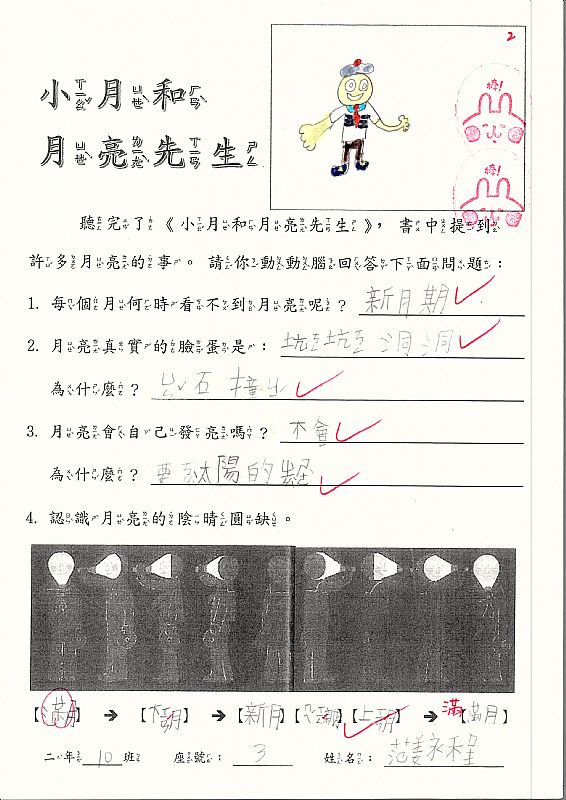 2
小月和
月亮先生
棒!
棒!
聽完了《小月和月亮先生》，書中提到
許多月亮的事。請你動動腦回答下面問題：
1. 每個月何時看不到月亮呢？新月期
2. 月亮真實的臉蛋是：坑坑洞洞
為什麼？石撞出
3. 月亮會自己發亮嗎？不會
為什麼？要太陽的
4. 認識月亮的陰晴圓缺。
【滿月】➔【下弦月】➔【新月】【上弦月】➔滿【滿月】
二年10班 座號：3 姓名：范姜